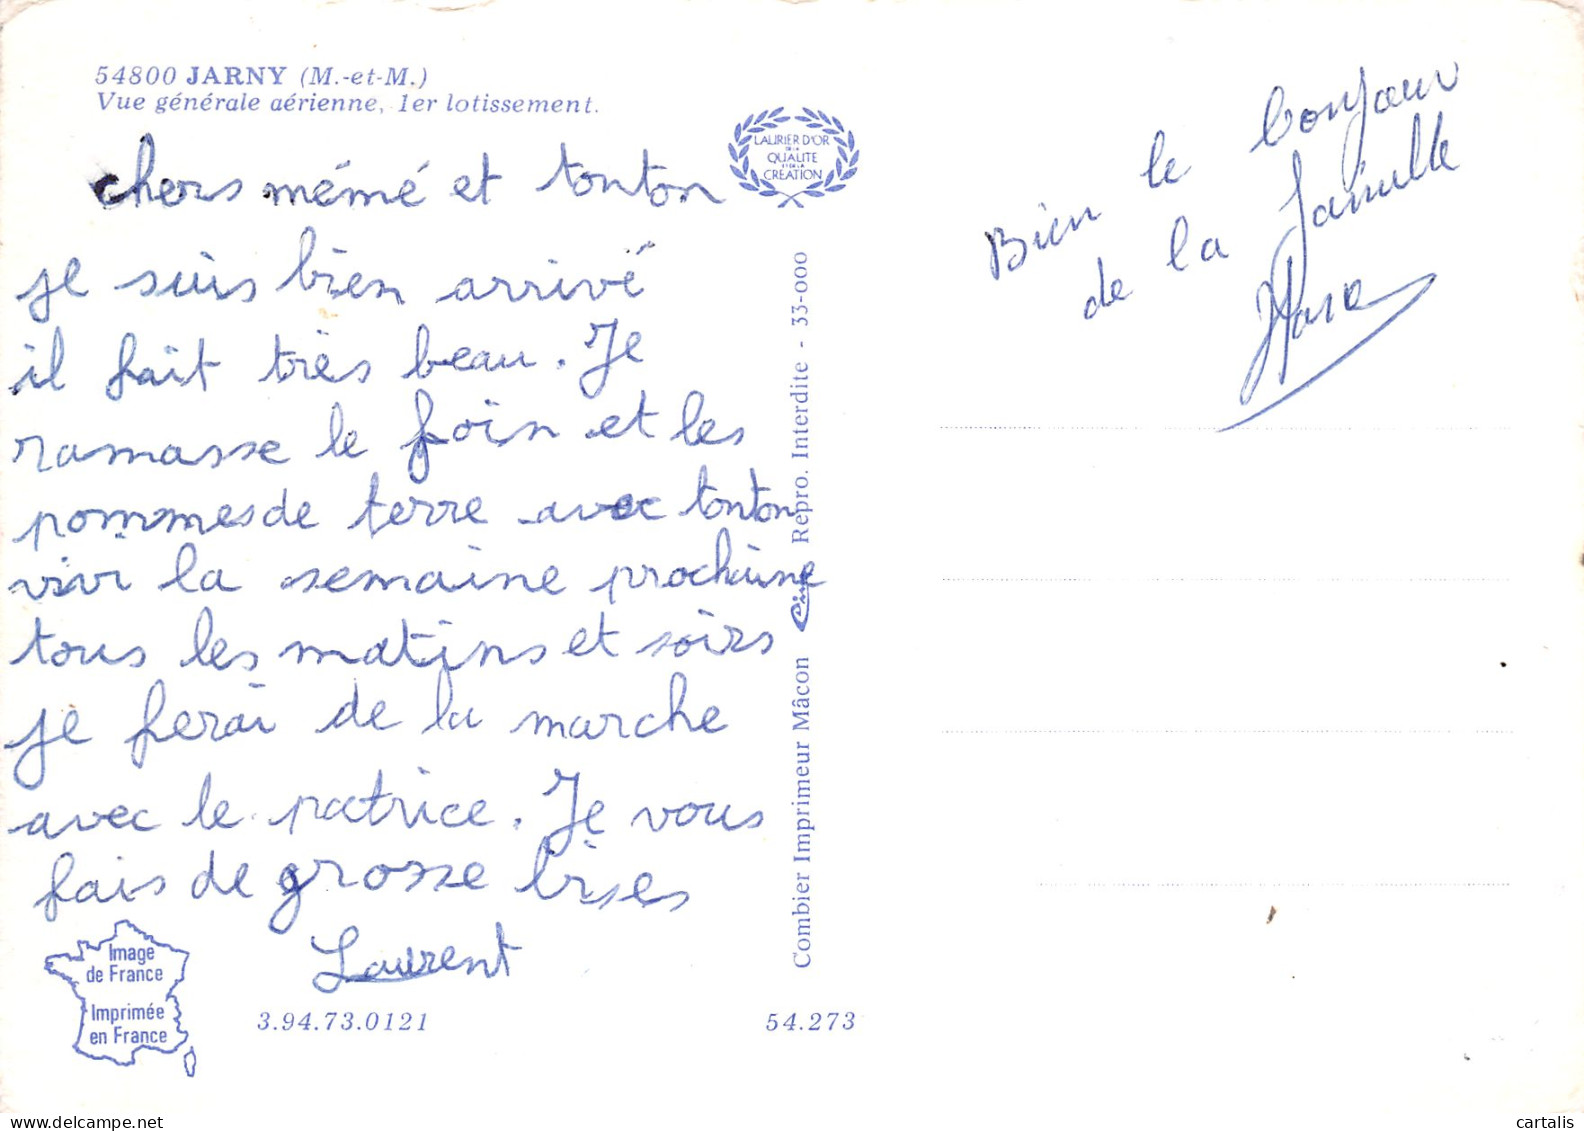 54800 JARNY (M.-et-M.)
Vue générale aérienne, 1er lotissement.
chers mémé et tonton
je suis bien arrivé
il fait très beau. Je
ramasse le foin et les
pommes de terre avec tonton
vivi la semaine prochaine
tous les matins et soirs
je ferai de la marche
avec le patrice. Je vous
fais de grosse bises
Laurent
LAURIER D'OR
DE LA
QUALITE
ET DE LA
CREATION
Combier Imprimeur Mâcon Cim Repro. Interdite - 33-000
Image
de France
Imprimée
en France
3.94.73.0121
54.273
Bien le bonjour
de la famille
cartalis
www.delcampe.net